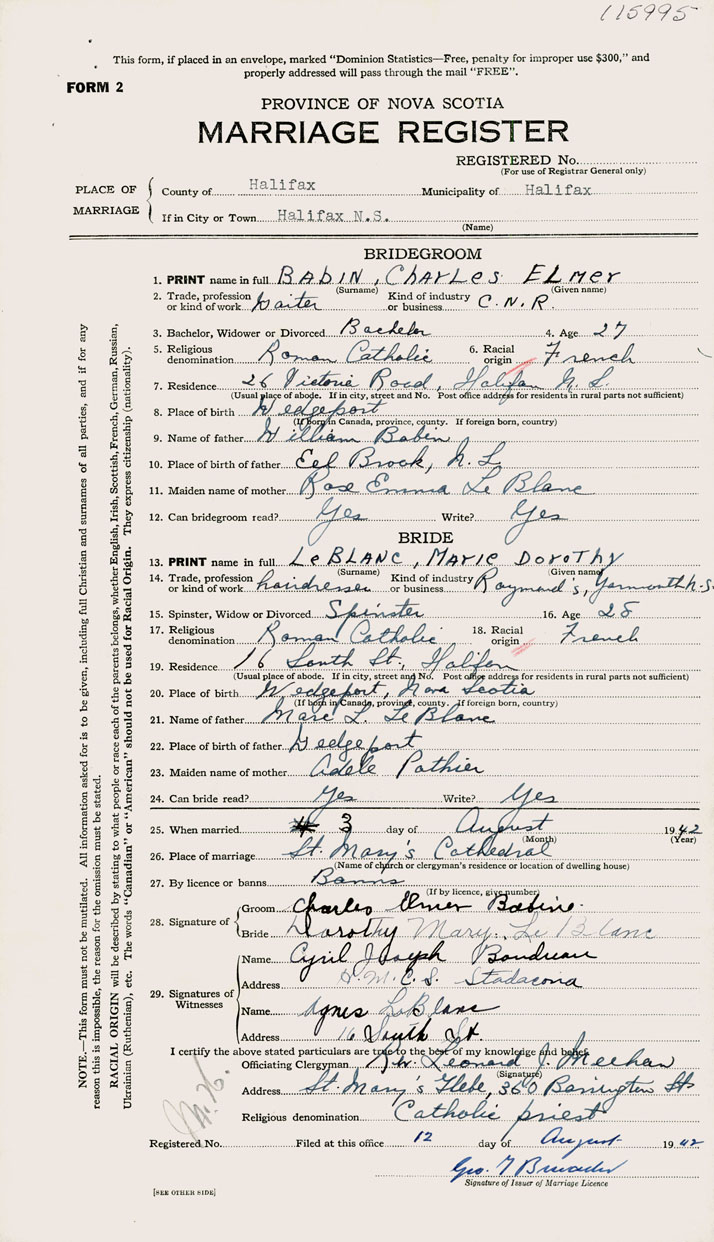 115995
This form, if placed in an envelope, marked "Dominion Statistics—Free, penalty for improper use $300," and
properly addressed will pass through the mail "FREE".
FORM 2
PROVINCE OF NOVA SCOTIA
MARRIAGE REGISTER
REGISTERED No.
(For use of Registrar General only)
PLACE OF MARRIAGE
County of Halifax Municipality of Halifax
If in City or Town Halifax N.S.
(Name)
BRIDEGROOM
1. PRINT name in full BABIN, CHARLES ELMER
(Surname) (Given name)
2. Trade, profession or kind of work Waiter Kind of industry or business C.N.R.
3. Bachelor, Widower or Divorced Bachelor 4. Age 27
5. Religious denomination Roman Catholic 6. Racial origin French
7. Residence 26 Victoria Road, Halifax N.S.
(Usual place of abode. If in city, street and No. Post office address for residents in rural parts not sufficient)
8. Place of birth Wedgeport
(If born in Canada, province, county. If foreign born, country)
9. Name of father William Babin
10. Place of birth of father Eel Brook, N.S.
11. Maiden name of mother Rose Emma Le Blanc
12. Can bridegroom read? Yes Write? Yes
BRIDE
13. PRINT name in full LeBLANC, MARIE DOROTHY
(Surname) (Given name)
14. Trade, profession or kind of work hairdresser Kind of industry or business Raymond's, Yarmouth N.S.
15. Spinster, Widow or Divorced Spinster 16. Age 28
17. Religious denomination Roman Catholic 18. Racial origin French
19. Residence 16 South St., Halifax
(Usual place of abode. If in city, street and No. Post office address for residents in rural parts not sufficient)
20. Place of birth Wedgeport, Nova Scotia
(If born in Canada, province, county. If foreign born, country)
21. Name of father Marc L. Le Blanc
22. Place of birth of father Wedgeport
23. Maiden name of mother Adele Pothier
24. Can bride read? Yes Write? Yes
25. When married 3 day of August 1942
(Month) (Year)
26. Place of marriage St. Mary's Cathedral
(Name of church or clergyman's residence or location of dwelling house)
27. By licence or banns Banns
(If by licence, give number)
28. Signature of
Groom Charles Elmer Babine
Bride Dorothy Mary Le Blanc
29. Signatures of Witnesses
Name Cyril Joseph Boudreau
Address H.M.C.S. Stadacona
Name Agnes LeBlanc
Address 16 South St.
I certify the above stated particulars are true to the best of my knowledge and belief.
Officiating Clergyman Leonard J. Meehan
(Signature)
Address St. Mary's Glebe, 360 Barrington St.
Religious denomination Catholic priest
Registered No. Filed at this office 12 day of August 1942
Geo.
Signature of Issuer of Marriage Licence
[SEE OTHER SIDE]
NOTE.—This form must not be mutilated. All information asked for is to be given, including full Christian and surnames of all parties, and if for any
reason this is impossible, the reason for the omission must be stated.
RACIAL ORIGIN will be described by stating to what people or race each of the parents belongs, whether English, Irish, Scottish, French, German, Russian,
Ukrainian (Ruthenian), etc. The words "Canadian" or "American" should not be used for Racial Origin. They express citizenship (nationality).